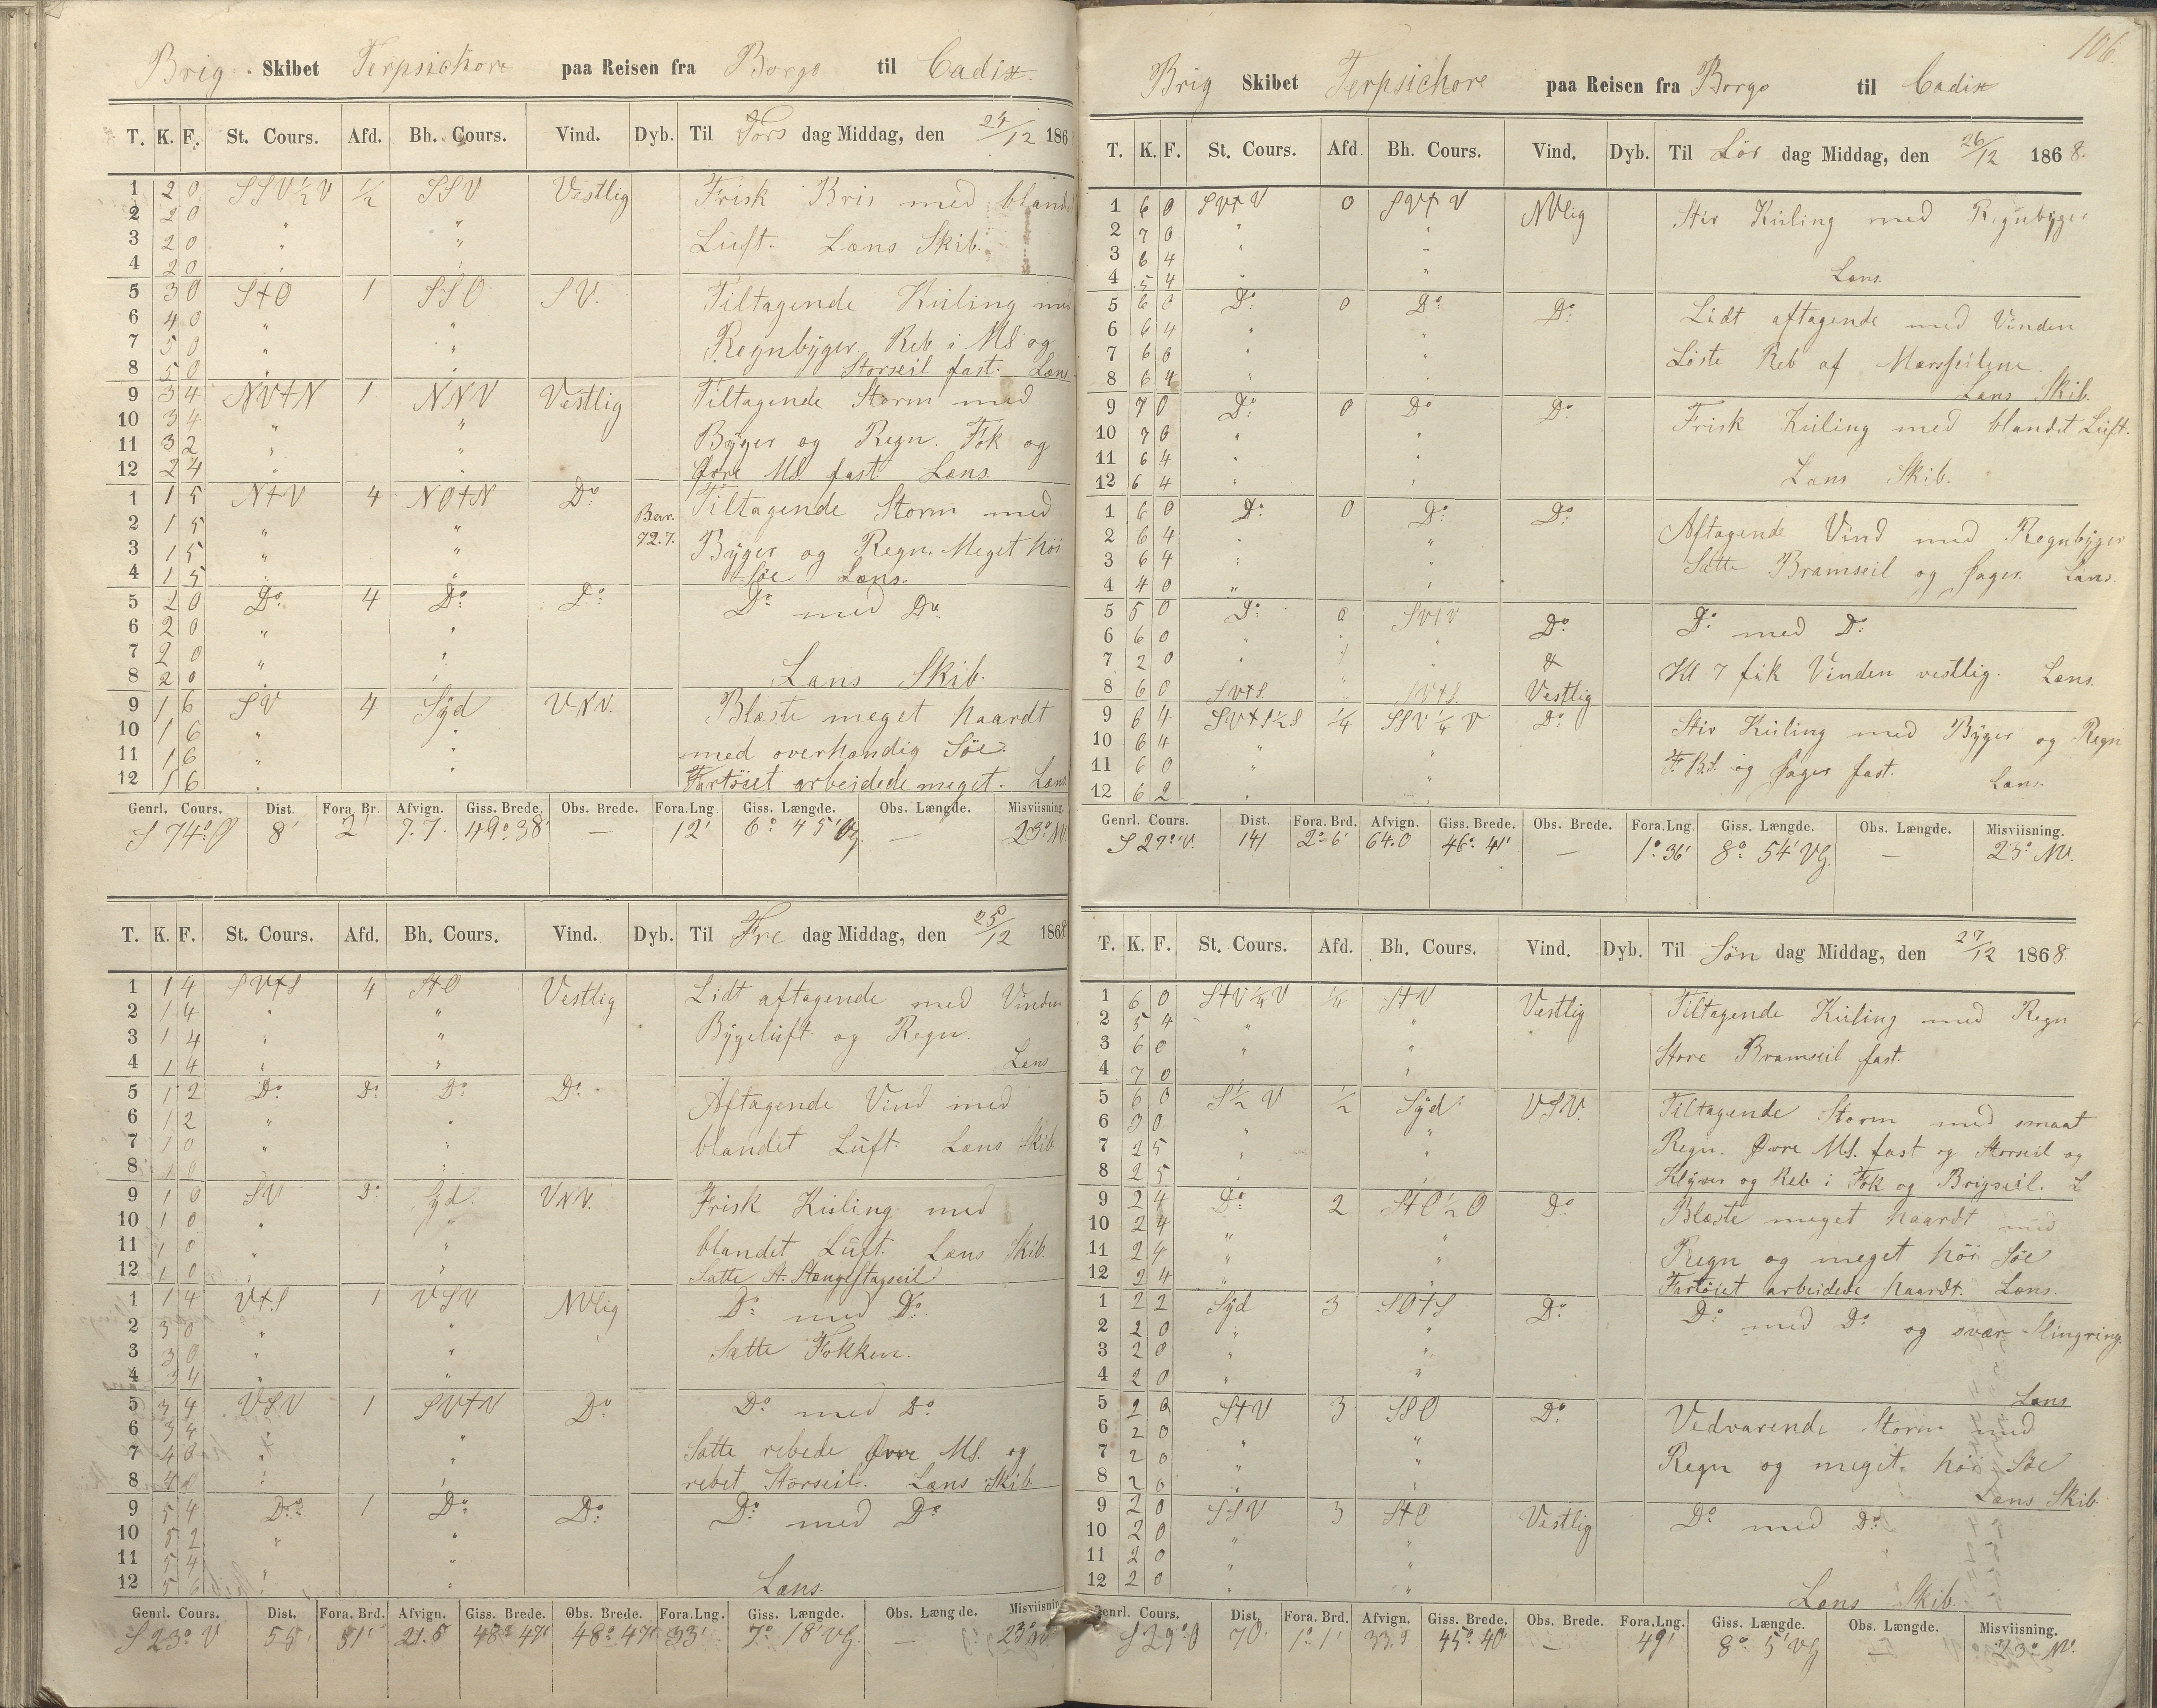 Brig Skibet Terpsichore paa Reisen fra Borgo til Cadix.
T. K. F. St. Cours. Afd. Bh. Cours. Vind. Dyb. Til Tors dag Middag, den 24/12 186
1 2 0 SSV½V ½ SSV Vestlig Frisk Bris med blandet
2 2 0 " "
3 2 0 " " Luft. Læns Skib.
4 2 0 " "
5 3 0 StO 1 SSO SV. Tiltagende Kuling med
6 4 0 " "
7 5 0 " " Regnbyger. Reb i MS og
8 5 0 " " Storseil fast. Læns
9 3 4 NVtN 1 NNV Vestlig Tiltagende Storm med
10 3 4 " "
11 3 2 " " Byger og Regn. Fok og
12 2 4 " " Øvre MS. fast. Læns.
1 1 5 NtV 4 NOtN Do Tiltagende Storm med
2 1 5 " " Bar.
3 1 5 " " 72.7. Byger og Regn. Meget høi
4 1 5 " " Søe Læns.
5 2 0 Do 4 Do Do Do med Do
6 2 0 " "
7 2 0 " "
8 2 0 " " Læns Skib.
9 1 6 SV 4 Syd VNV. Blæste meget haardt
10 1 6 " "
11 1 6 " " med overhændig Søe.
12 1 6 " " Fartöiet arbeidede meget. Læns
Genrl. Cours. Dist. Fora. Br. Afvign. Giss. Brede. Obs. Brede. Fora.Lng Giss. Længde. Obs. Længde. Misviisning.
S 74° O 8' 2' 7.7. 49° 38' — 12' 6° 45' Vg. — 23° NV.
T. K. F. St. Cours. Afd. Bh. Cours. Vind. Dyb. Til Fre dag Middag, den 25/12 1868
1 1 4 SVtS 4 StO Vestlig Lidt aftagende med Vinden
2 1 4 " "
3 1 4 " " Bygeluft og Regn.
4 1 4 " " Læns
5 1 2 Do Do Do Do Aftagende Vind med
6 1 2 " "
7 1 0 " " blandet Luft. Læns Skib
8 1 0 "
9 1 0 SV Do Syd VNV. Frisk Kuling med
10 1 0 " "
11 1 0 " " blandet Luft. Læns Skib.
12 1 0 " " Satte St. Stængestagseil
1 1 4 VtS 1 VSV NVlig Do med Do
2 3 0 " "
3 3 0 " " Satte Fokken.
4 3 4 " "
5 3 4 VSV 1 SVtV Do Do med Do
6 3 4 " "
7 4 0 " " Satte rebede Øvre MS. og
8 4 0 " " rebet Storseil. Læns Skib
9 5 4 Do 1 Do Do Do med Do
10 5 2 " "
11 5 4 " "
12 5 6 " " Læns.
Genrl. Cours. Dist. Fora. Brd. Afvign. Giss. Brede. Obs. Brede. Fora.Lng. Giss. Længde. Obs. Længde. Misviisning
S 23° V 55' 51' 21.5 48° 47' 48° 47' 33' 7° 18' VG. — 23° NV
106.
Brig Skibet Terpsichore paa Reisen fra Borgo til Cadix
T. K. F. St. Cours. Afd Bh. Cours. Vind. Dyb. Til Lör dag Middag, den 26/12 1868.
1 6 0 SVtV 0 SVtV NVlig Stiv Kuling med Regnbyger
2 7 0 " "
3 6 4 " "
4 5 4 " " Læns.
5 6 0 Do 0 Do Do Lidt aftagende med Vinden
6 6 4 " "
7 6 6 " " Löste Reb af Mærsseilene.
8 6 4 " " Læns Skib.
9 7 0 Do 0 Do Do Frisk Kuling med blandet Luft.
10 7 0 " "
11 6 4 " " Læns Skib.
12 6 4 " "
1 6 0 Do 0 Do Do Aftagende Vind med Regnbyger
2 6 4 " "
3 6 4 " " Satte Bramseil og Jager. Læns.
4 4 0 " "
5 5 0 Do 0 SVtV Do Do med Do
6 6 0 " " "
7 2 0 " " " & Kl 7 fik Vinden vestlig. Læns.
8 6 0 SVtS. " SVtS. Vestlig
9 6 4 SVtS½S ¼ SSV¼V Do Stiv Kuling med Byger og Regn
10 6 4 " "
11 6 0 " " F. BS. og Jager fast.
12 6 2 " " Læns.
Genrl. Cours. Dist. Fora. Brd. Afvign. Giss. Brede. Obs. Brede. Fora.Lng. Giss. Længde. Obs. Længde. Misviisning.
S 27° V. 141 2° 6' 64.0 46° 41' — 1° 36' 8° 54' VG. — 23° NV.
T. K. F. St. Cours. Afd. Bh. Cours. Vind. Dyb. Til Søn dag Middag, den 27/12 1868.
1 6 0 StV¼V ¼ StV Vestlig Tiltagende Kuling med Regn
2 5 4 " "
3 6 0 " " Store Bramseil fast.
4 7 0 " "
5 6 0 S½V ½ Syd VSV. Tiltagende Storm med smaat
6 3 0 " "
7 2 5 " " Regn. Øvre MS. fast og Storseil og
8 2 5 " " Klyver og Reb i Fok og Brigseil. L
9 2 4 Do 2 StO½O Do Blæste meget haardt med
10 2 4 " "
11 2 4 " " Regn og meget höi Søe
12 2 4 " " Fartöiet arbeidede haardt. Læns.
1 2 2 Syd 3 SOtS Do Do med Do og svær Slingring.
2 2 0 " "
3 2 0 " "
4 2 0 " " Læns
5 2 0 StV 3 SSO Do Vedvarende Storm med
6 2 0 " "
7 2 0 " " Regn og meget höi Søe
8 2 0 " " Læns Skib.
9 2 0 SSV 3 StO Vestlig Do med Do
10 2 0 " "
11 2 0 " "
12 2 0 " " Læns Skib.
Genrl. Cours. Dist. Fora. Brd. Afvign. Giss. Brede. Obs. Brede. Fora.Lng. Giss. Længde. Obs. Længde. Misviisning.
S 29° O 70' 1° 1' 33.9 45° 40' — 49' 8° 5' VG — 23° NV.